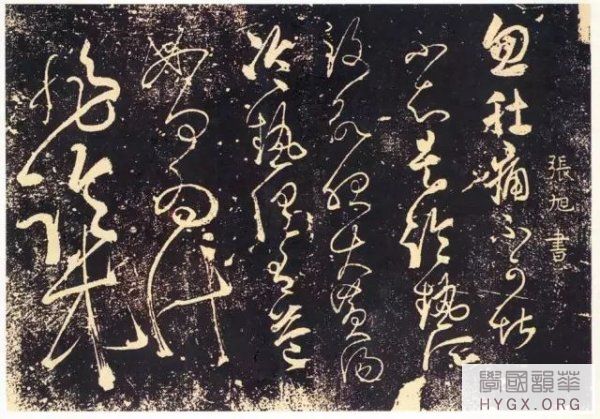 張旭書
忽肚痛不可堪
不知是冷熱所
致欲服大黃湯
冷熱俱有益
如何為計
非臨床
華韻國學
HYGX.ORG